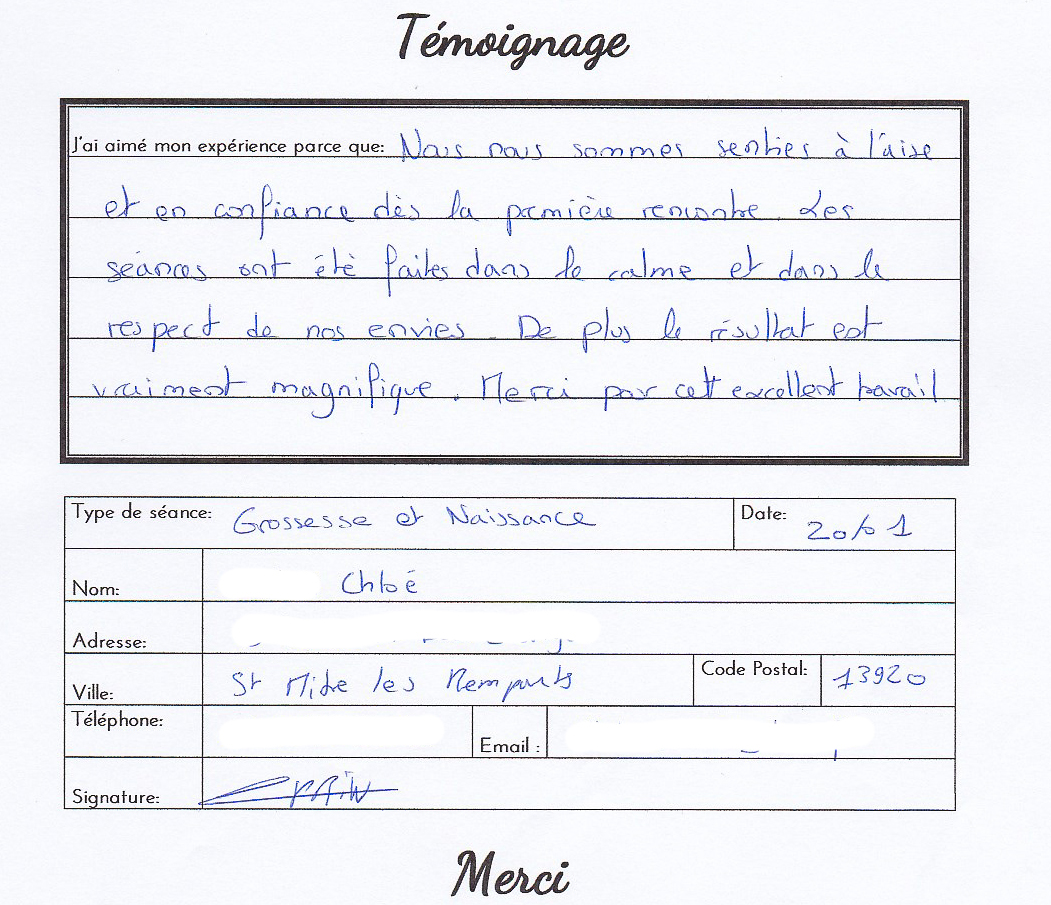 Témoignage
J'ai aimé mon expérience parce que: Nous nous sommes senties à l'aise
et en confiance dès la première rencontre. Les
séances ont été faites dans le calme et dans le
respect de nos envies. De plus le résultat est
vraiment magnifique. Merci pour cet excellent travail
Type de séance: Grossesse et Naissance Date: 20/01
Nom: Chloé
Adresse:
Ville: St Mitre les Remparts Code Postal: 13920
Téléphone: Email :
Signature:
Merci